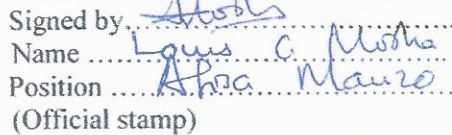 Signed by
Name ..... Louis C. Mosha
Position .... Afisa Mauzo
(Official stamp)